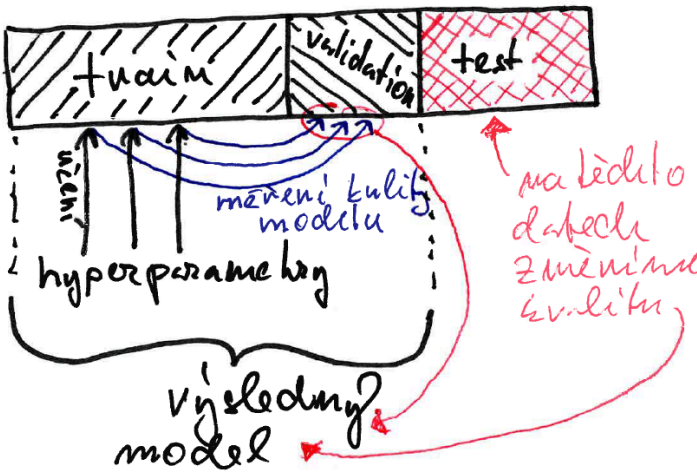 train
validation
test
učení
měření kvality
modelu
hyperparametry
na těchto
datech
změříme
kvalitu
výsledný
model